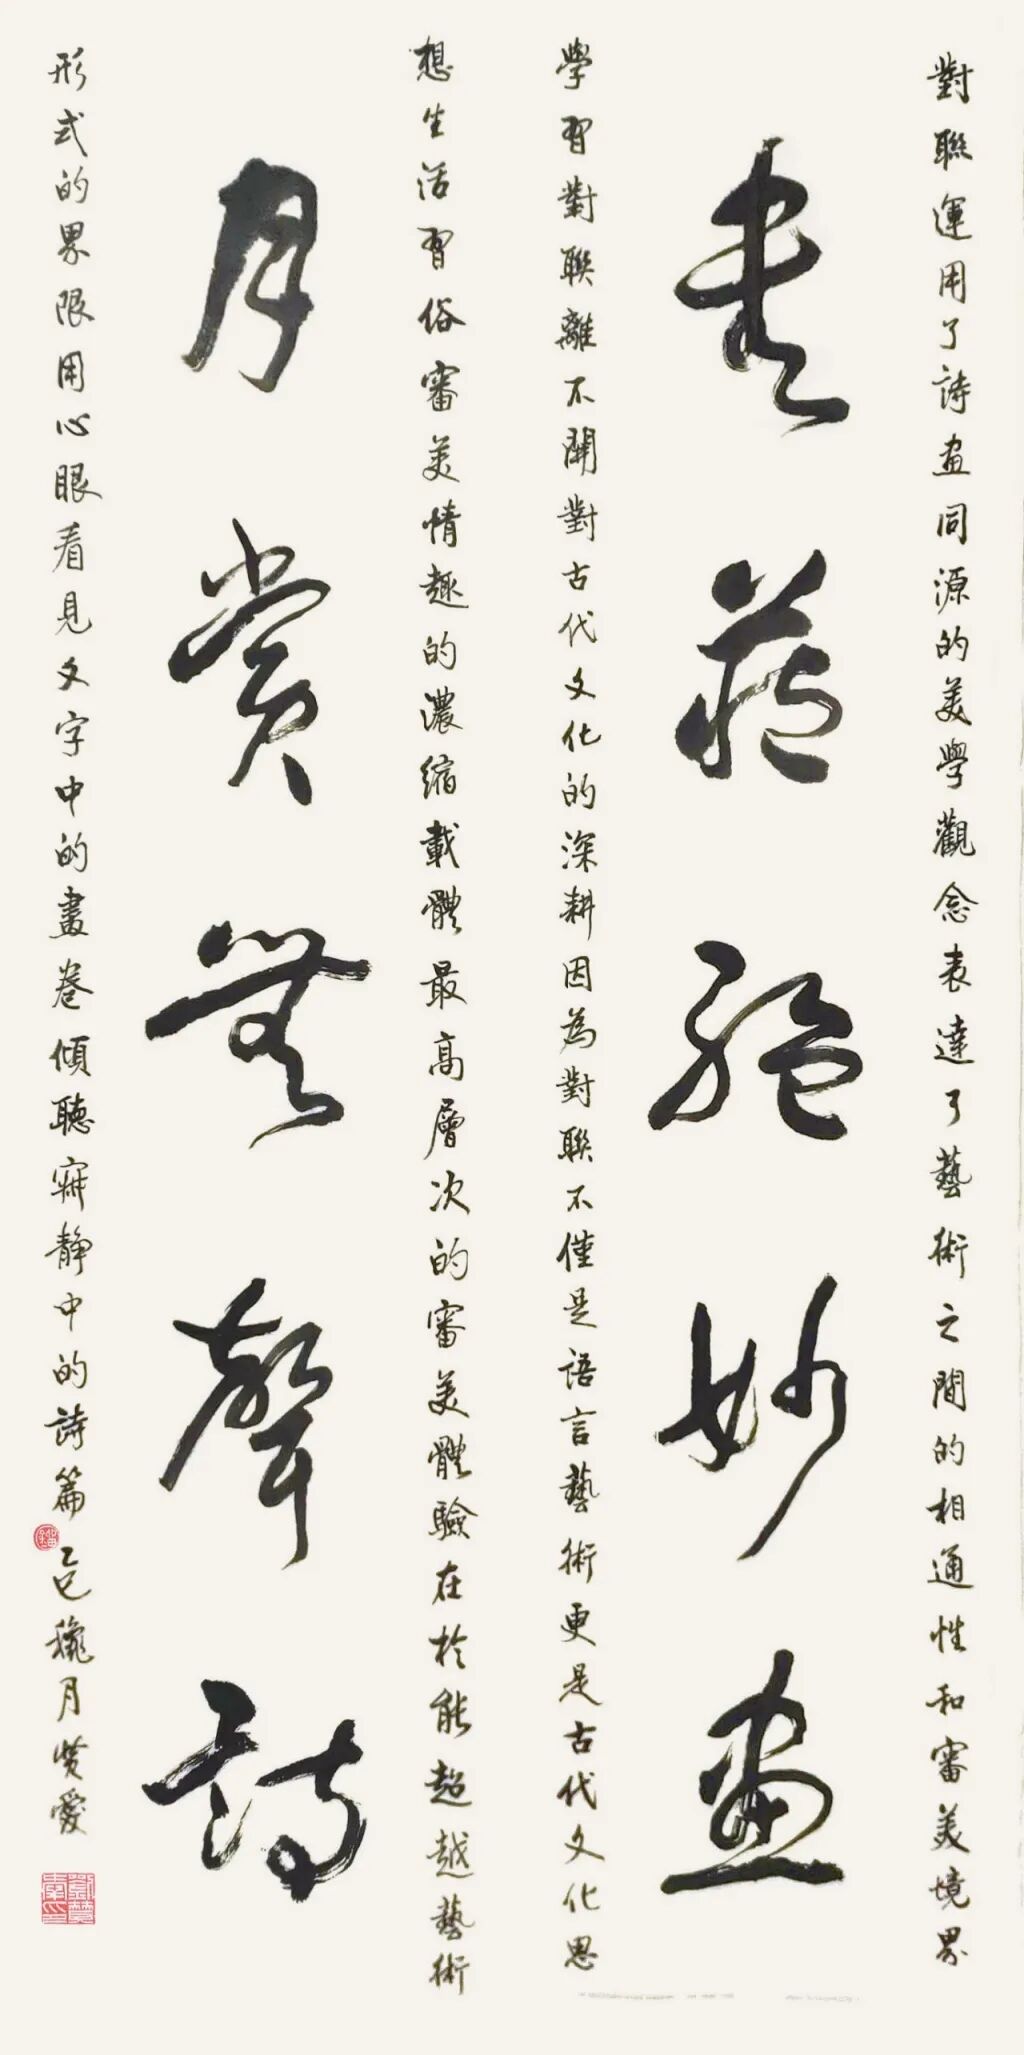 對聯運用了詩畫同源的美學觀念表達了藝術之間的相通性和審美境界
春藏絕妙畫
學習對聯離不開對古代文化的深耕因為對聯不僅是語言藝術更是古代文化思
想生活習俗審美情趣的濃縮載體最高層次的審美體驗在於能超越藝術
月賞無聲詩
形式的界限用心眼看見文字中的畫卷傾聽寂靜中的詩篇 乙巳龝月賢愛